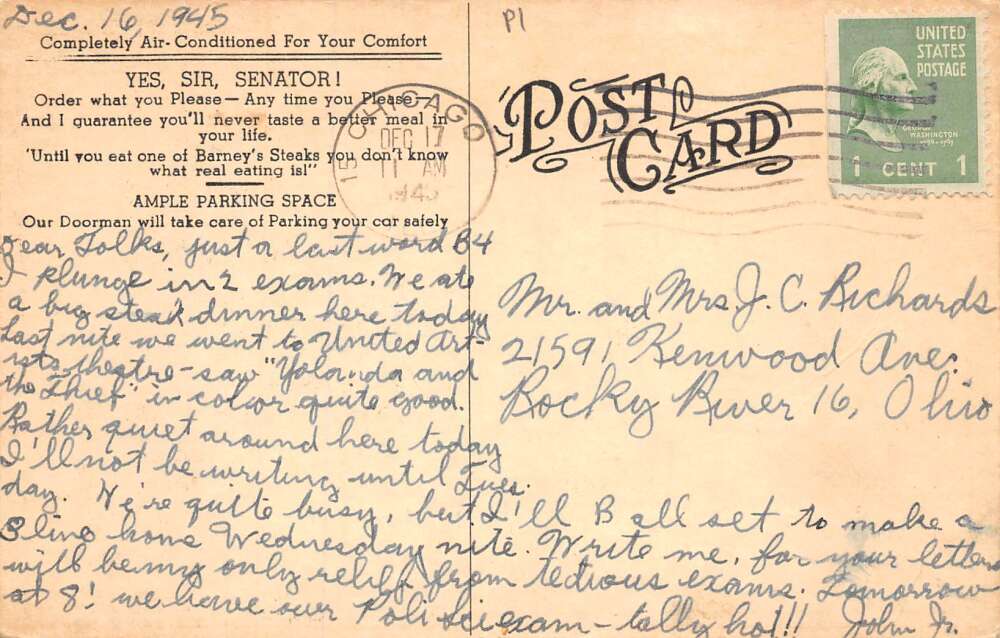 Dec. 16, 1945
Completely Air-Conditioned For Your Comfort
YES, SIR, SENATOR!
Order what you Please— Any time you Please—
And I guarantee you'll never taste a better meal in
your life.
'Until you eat one of Barney's Steaks you don't know
what real eating is!"
AMPLE PARKING SPACE
Our Doorman will take care of Parking your car safely
P1
CHICAGO 15
DEC 17
11 AM
1945
POST CARD
UNITED
STATES
POSTAGE
GEORGE
WASHINGTON
1 CENT 1
Dear Folks, just a last word B4
I plunge in 2 exams. We ate
a big steak dinner here today
Last nite we went to United Art-
ists theatre - saw "Yolanda and
the Thief" in color quite good.
Rather quiet around here today
I'll not be writing until Tues-
day. We're quite busy, but I'll B all set to make a
B line home Wednesday nite. Write me, for your letters
will be my only relief from tedious exams. Tomorrow
at 8! we have our Poli Sci exam - tally ho!!! John Jr.
Mr. and Mrs J. C. Richards
21591 Kenwood Ave.
Rocky River 16, Ohio